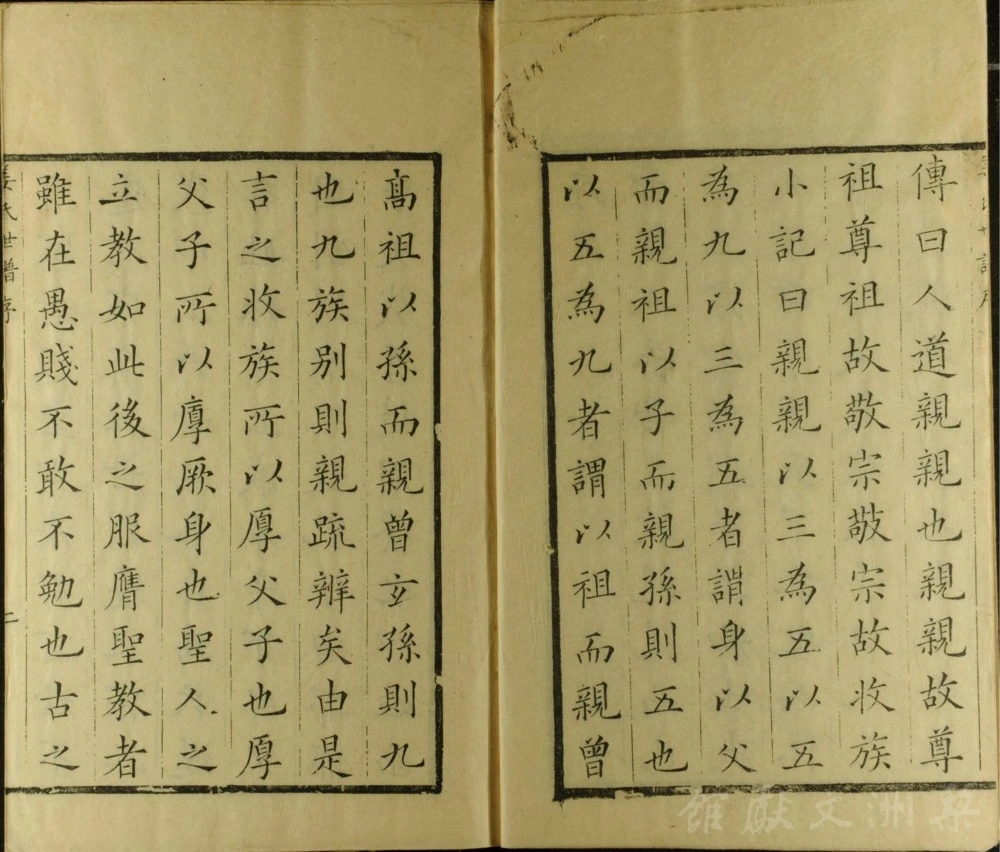 傳曰人道親親也親親故尊
祖尊祖故敬宗敬宗故收族
小記曰親親以三為五以五
為九以三為五者謂身以父
而親祖以子而親孫則五也
以五為九者謂以祖而親曾
高祖以孫而親曾玄孫則九
也九族别則親疏辨矣由是
言之收族所以厚父子也厚
父子所以厚厥身也聖人之
立教如此後之服膺聖教者
雖在愚賤不敢不勉也古之
姜氏世譜序
二
梨洲文獻館